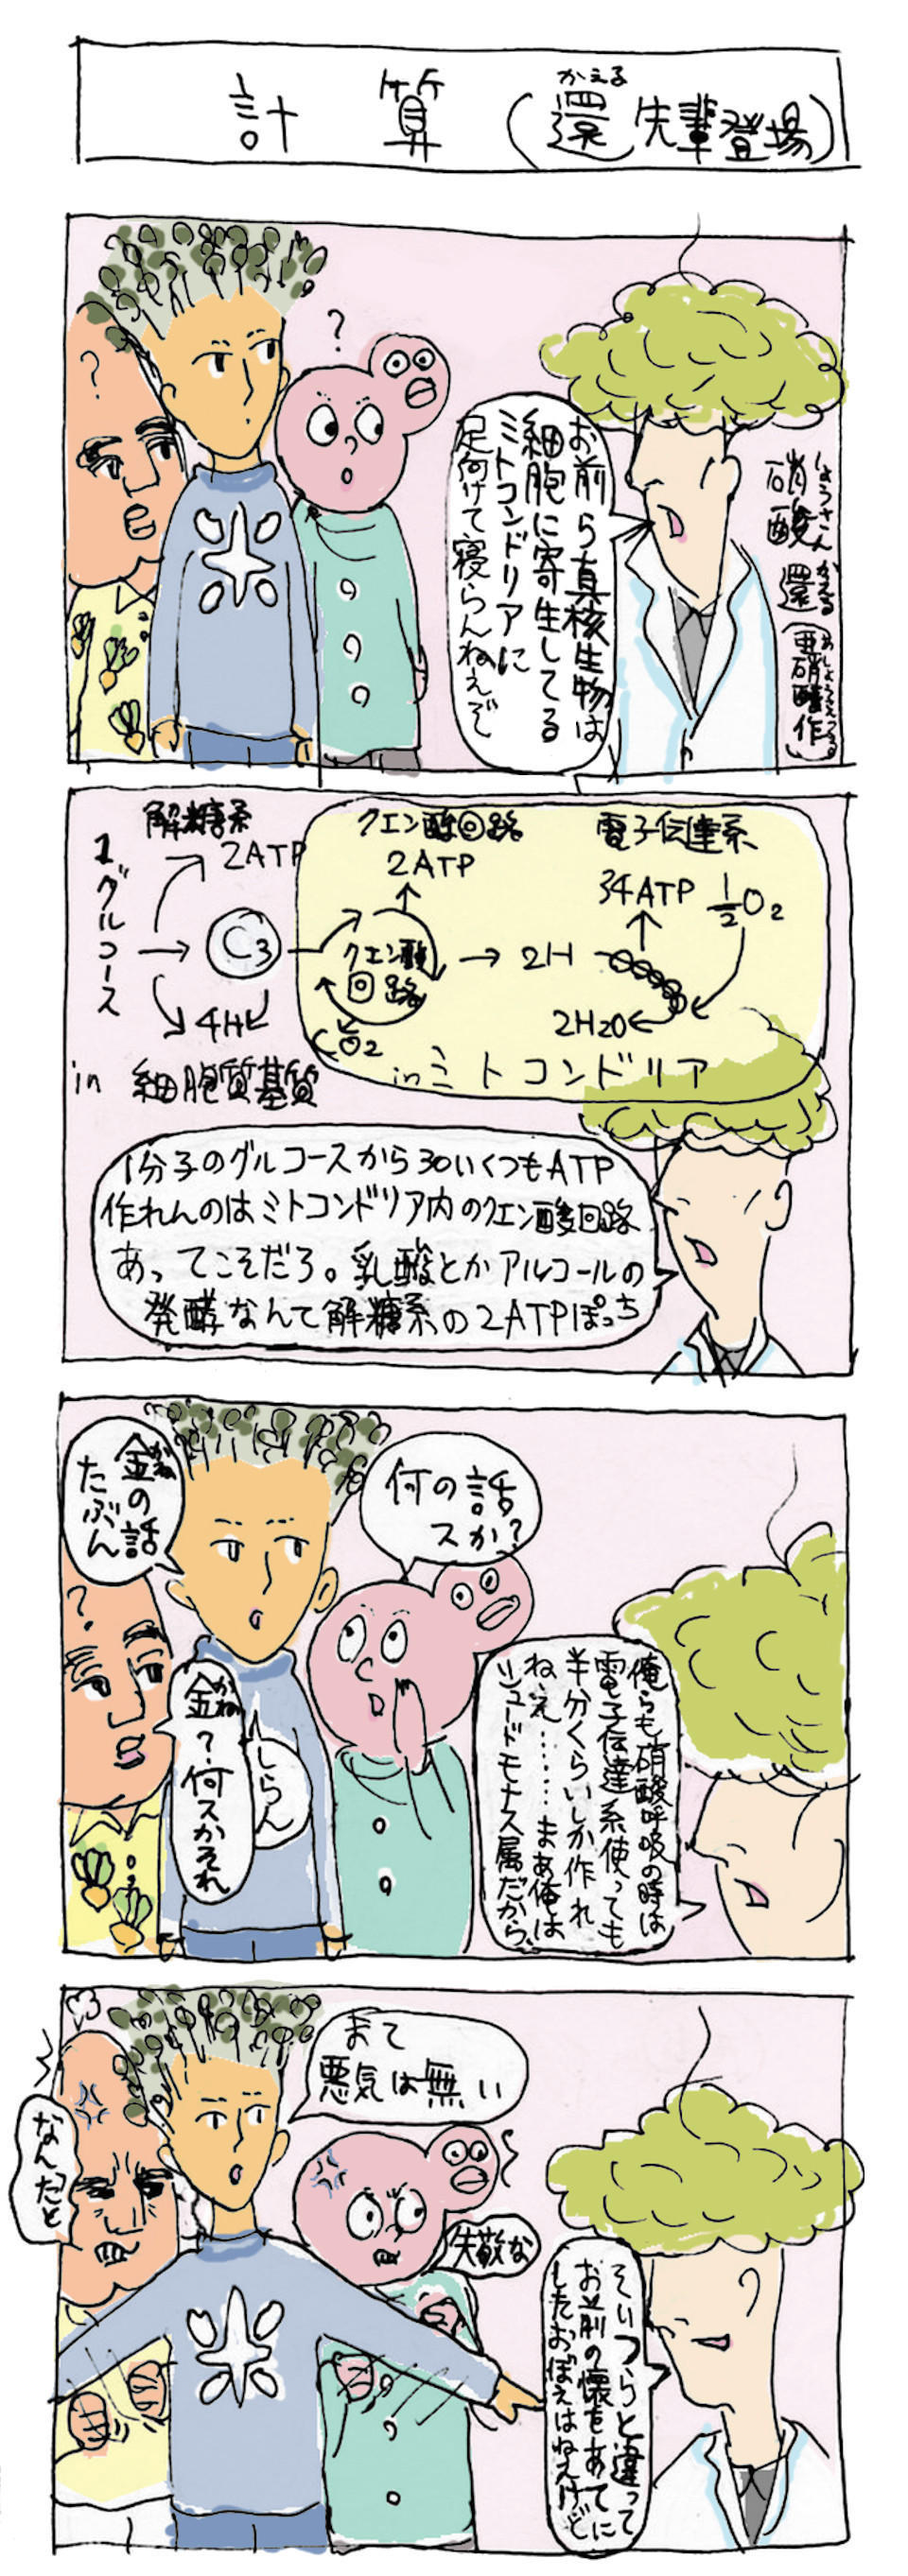 計算(還先輩登場)
かえる
?
?
お前ら真核生物は
細胞に寄生してる
ミトコンドリアに
足向けて寝らんねぇぞ
しょうさん かえる
硝酸 還
(亜硝酸作)
解糖系
2ATP
1グルコース
C3
4H
in 細胞質基質
クエン酸回路
2ATP
クエン酸
回路
CO2
電子伝達系
34ATP
1/2 O2
2H
2H2O
in ミトコンドリア
1分子のグルコースから30いくつもATP
作れんのはミトコンドリア内のクエン酸回路
あってこそだろ。乳酸とかアルコールの
発酵なんて解糖系の2ATPぽっち
何の話
スか?
かね
金の話
たぶん
?
かね
金?何スかそれ
しらん
俺らも硝酸呼吸の時は
電子伝達系使っても
半分くらいしか作れ
ねぇ……まあ俺は
シュードモナス属だから
まて
悪気は無い
なんだと
失敬な
そいつらと違って
お前の懐をあてに
したおぼえはねえけど